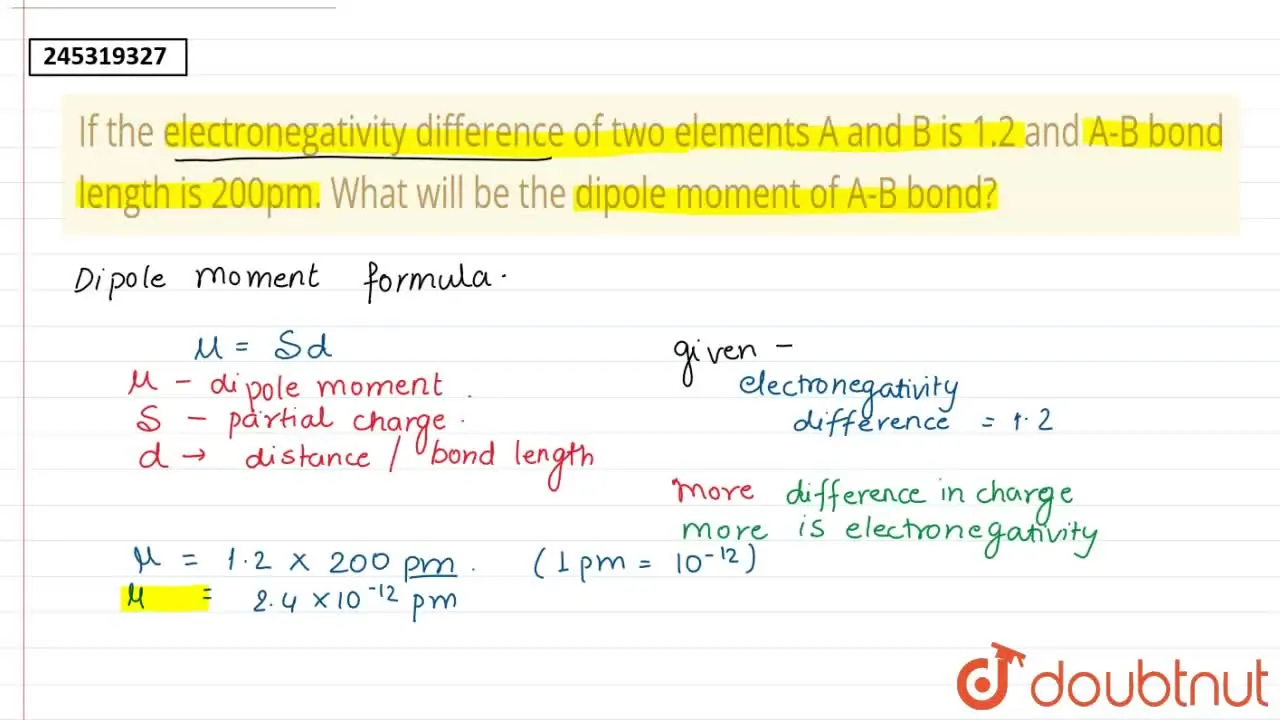 245319327
If the electronegativity difference of two elements A and B is 1.2 and A-B bond
length is 200pm. What will be the dipole moment of A-B bond?
Dipole moment formula.
μ = Sd
μ - dipole moment.
S - partial charge.
d → distance / bond length
given -
electronegativity
difference = 1.2
more difference in charge
more is electronegativity
μ = 1.2 × 200 pm. (1 pm = 10⁻¹²)
μ = 2.4 × 10⁻¹² pm
doubtnut